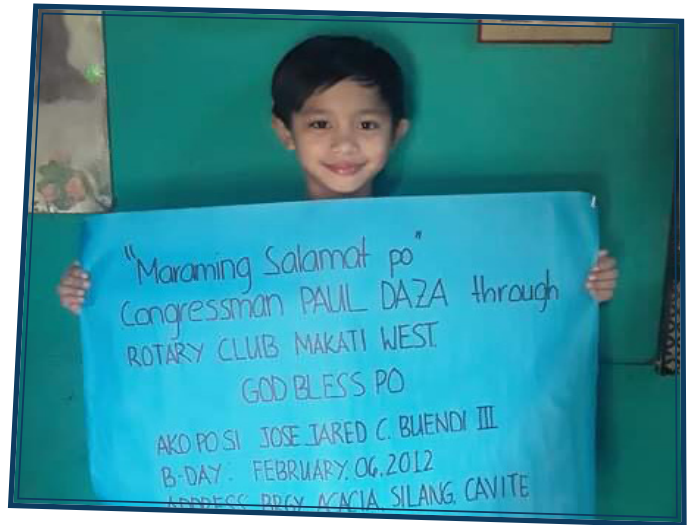 "Maraming Salamat po"
Congressman PAUL DAZA through
ROTARY CLUB MAKATI WEST.
GOD BLESS PO
AKO PO SI JOSE JARED C. BUENDI III
B-DAY: FEBRUARY. 06, 2012
ADDRESS BRGY ACACIA, SILANG, CAVITE